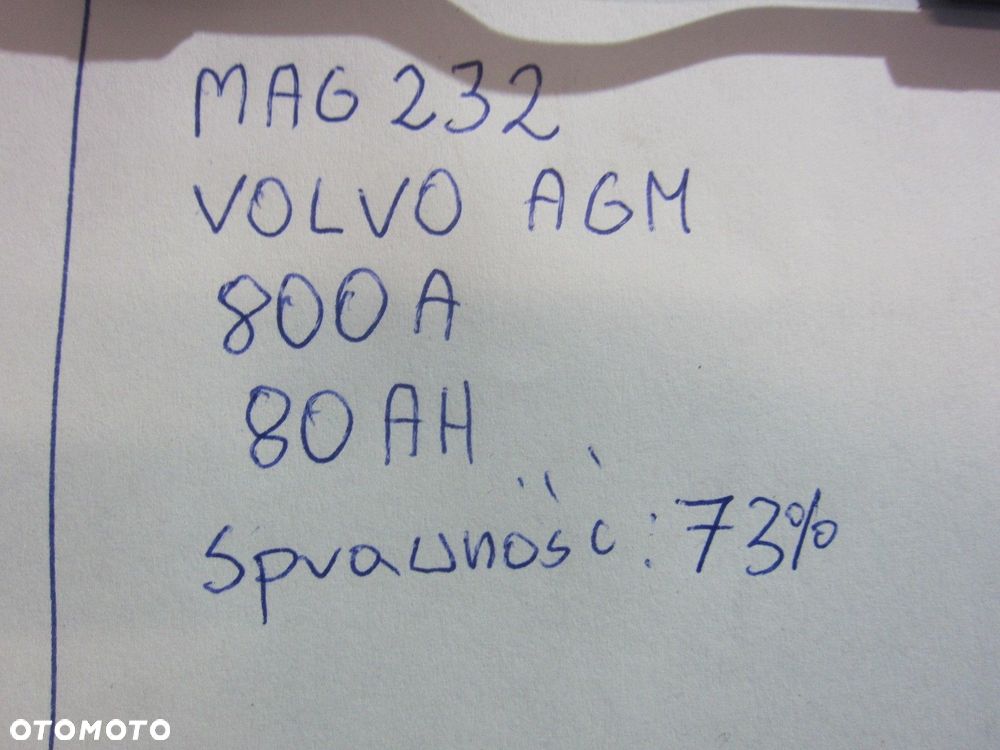 MAG 232
VOLVO AGM
800 A
80 AH
Sprawność: 73%
OTOMOTO